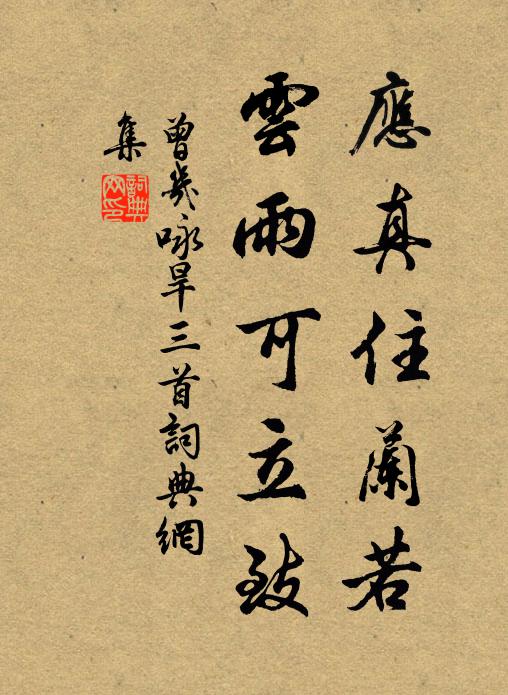 應真住蘭若
雲雨可立致
曾幾咏旱三首詞典網
集
詞典網印